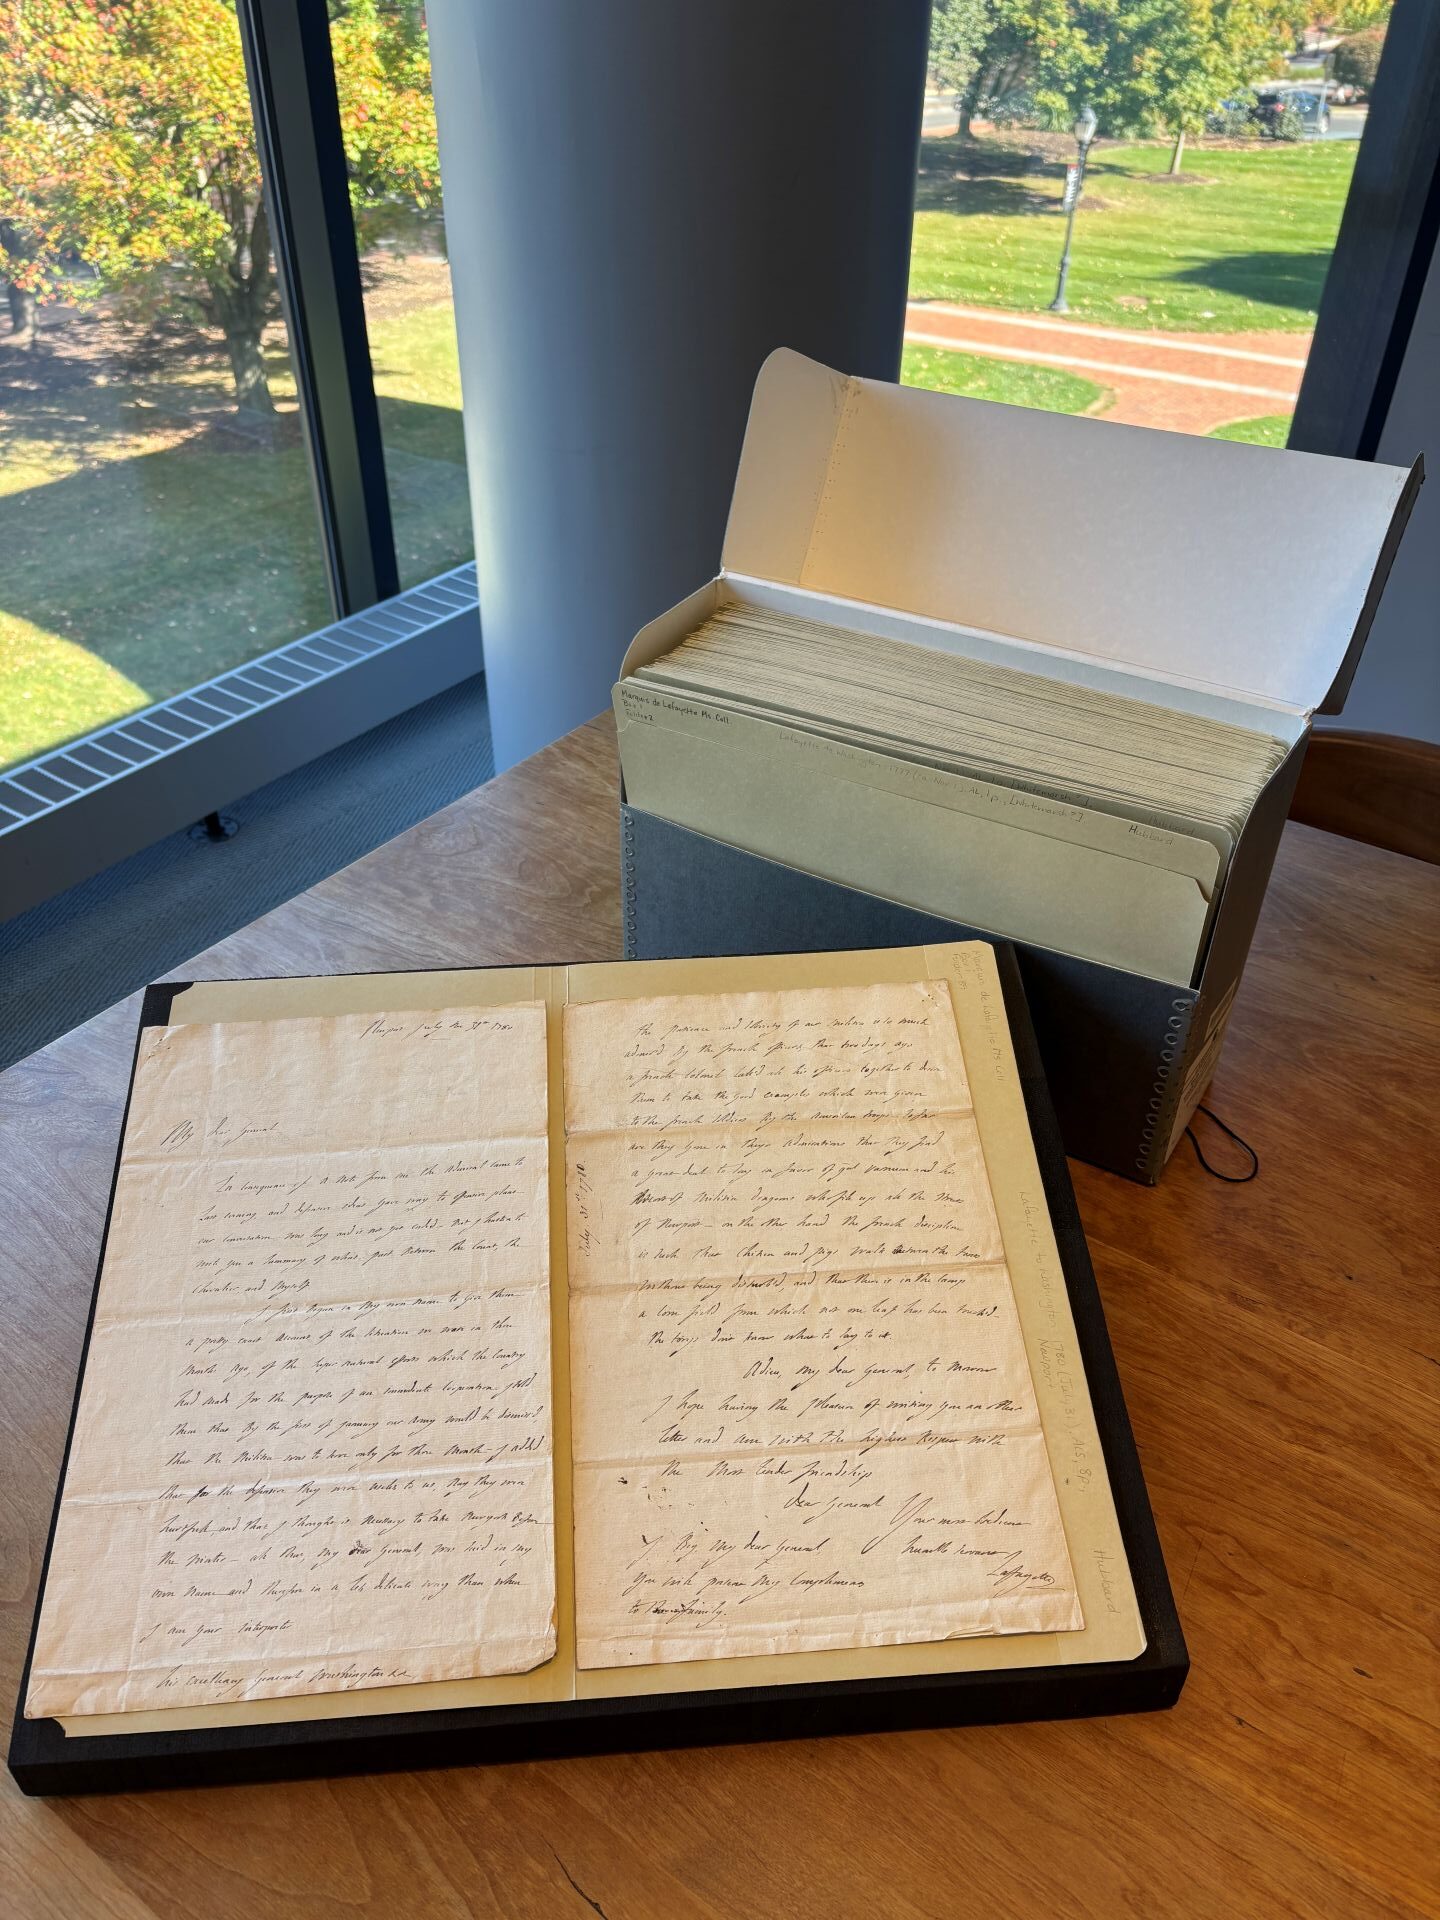 Marquis de Lafayette Ms. Coll.
Box 1
Folder 2
Lafayette to Washington 1777 (ca. Nov. 1), AL, 1 p., [Whitemarsh?]
Hubbard
Hubbard
Marquis de Lafayette Ms Coll
Box 1
Lafayette to Washington 1780 [July 31, ALS, 8p.,
Newport
Hubbard
july the 31st 1780
My dear General
In consequence of a Note from me the Admiral came to
and defensive ideas gave way to offensive plans
our conversation was long and is not yet ended
with you a Summary of what past Between the Count, the
chevalier and Myself
I first Began in My own name to Give them
a pretty exact account of the situation we were in three
Months ago, of the super natural efforts which the Country
had made for the purpose of an immediate Cooperation. I told
them that By the first of january our Army would be dismissed,
that the Militia was to serve only for three Months. I added
that for the defensive they were useless to us, nay they were
hurtfull, and that I thought it Necessary to take Newyork Before
the winter. all that, My dear General, was said in my
own name and therefore in a less delicate way than when
I am your interpreter
his excellency General Washington
the patience and sobriety of our Militia is so much
admir'd By the french officers that two days ago
a french Colonel call'd all his officers together to desire
them to take the good examples which were given
to the french soldiers By the American troops. So far
are they gone in their admirations that they find
a great deal to say in favor of and his
of Militia dragoons who fill up all the streets
of Newport. on the other hand the french discipline
is such that chiken and pigs walk Between the tents
without being disturb'd, and that there is in the Camp
a corn field from which not one leaf has been touched.
the torys don't know what to say to it.
Adieu, My dear General, to morrow
I hope having the pleasure of writing you an other
letter and am with the highest Respect with
the Most tender friendship
Dear General
Your most obedient
humble servant
Lafayette
I Beg, My dear General,
you will present My Compliments
to family.